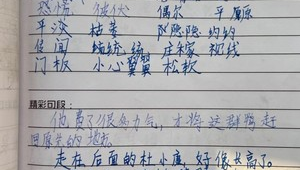 恐慌 彼伏 偶尔 平原
平淡 枯萎 隐隐约约
住闻 统统 庄稼 视线
门板 小心翼翼 松软
精彩句段:
他费了很多力气，才将这群鹅赶
回原先的地坛
走在后面的杜小康，好像长高了。